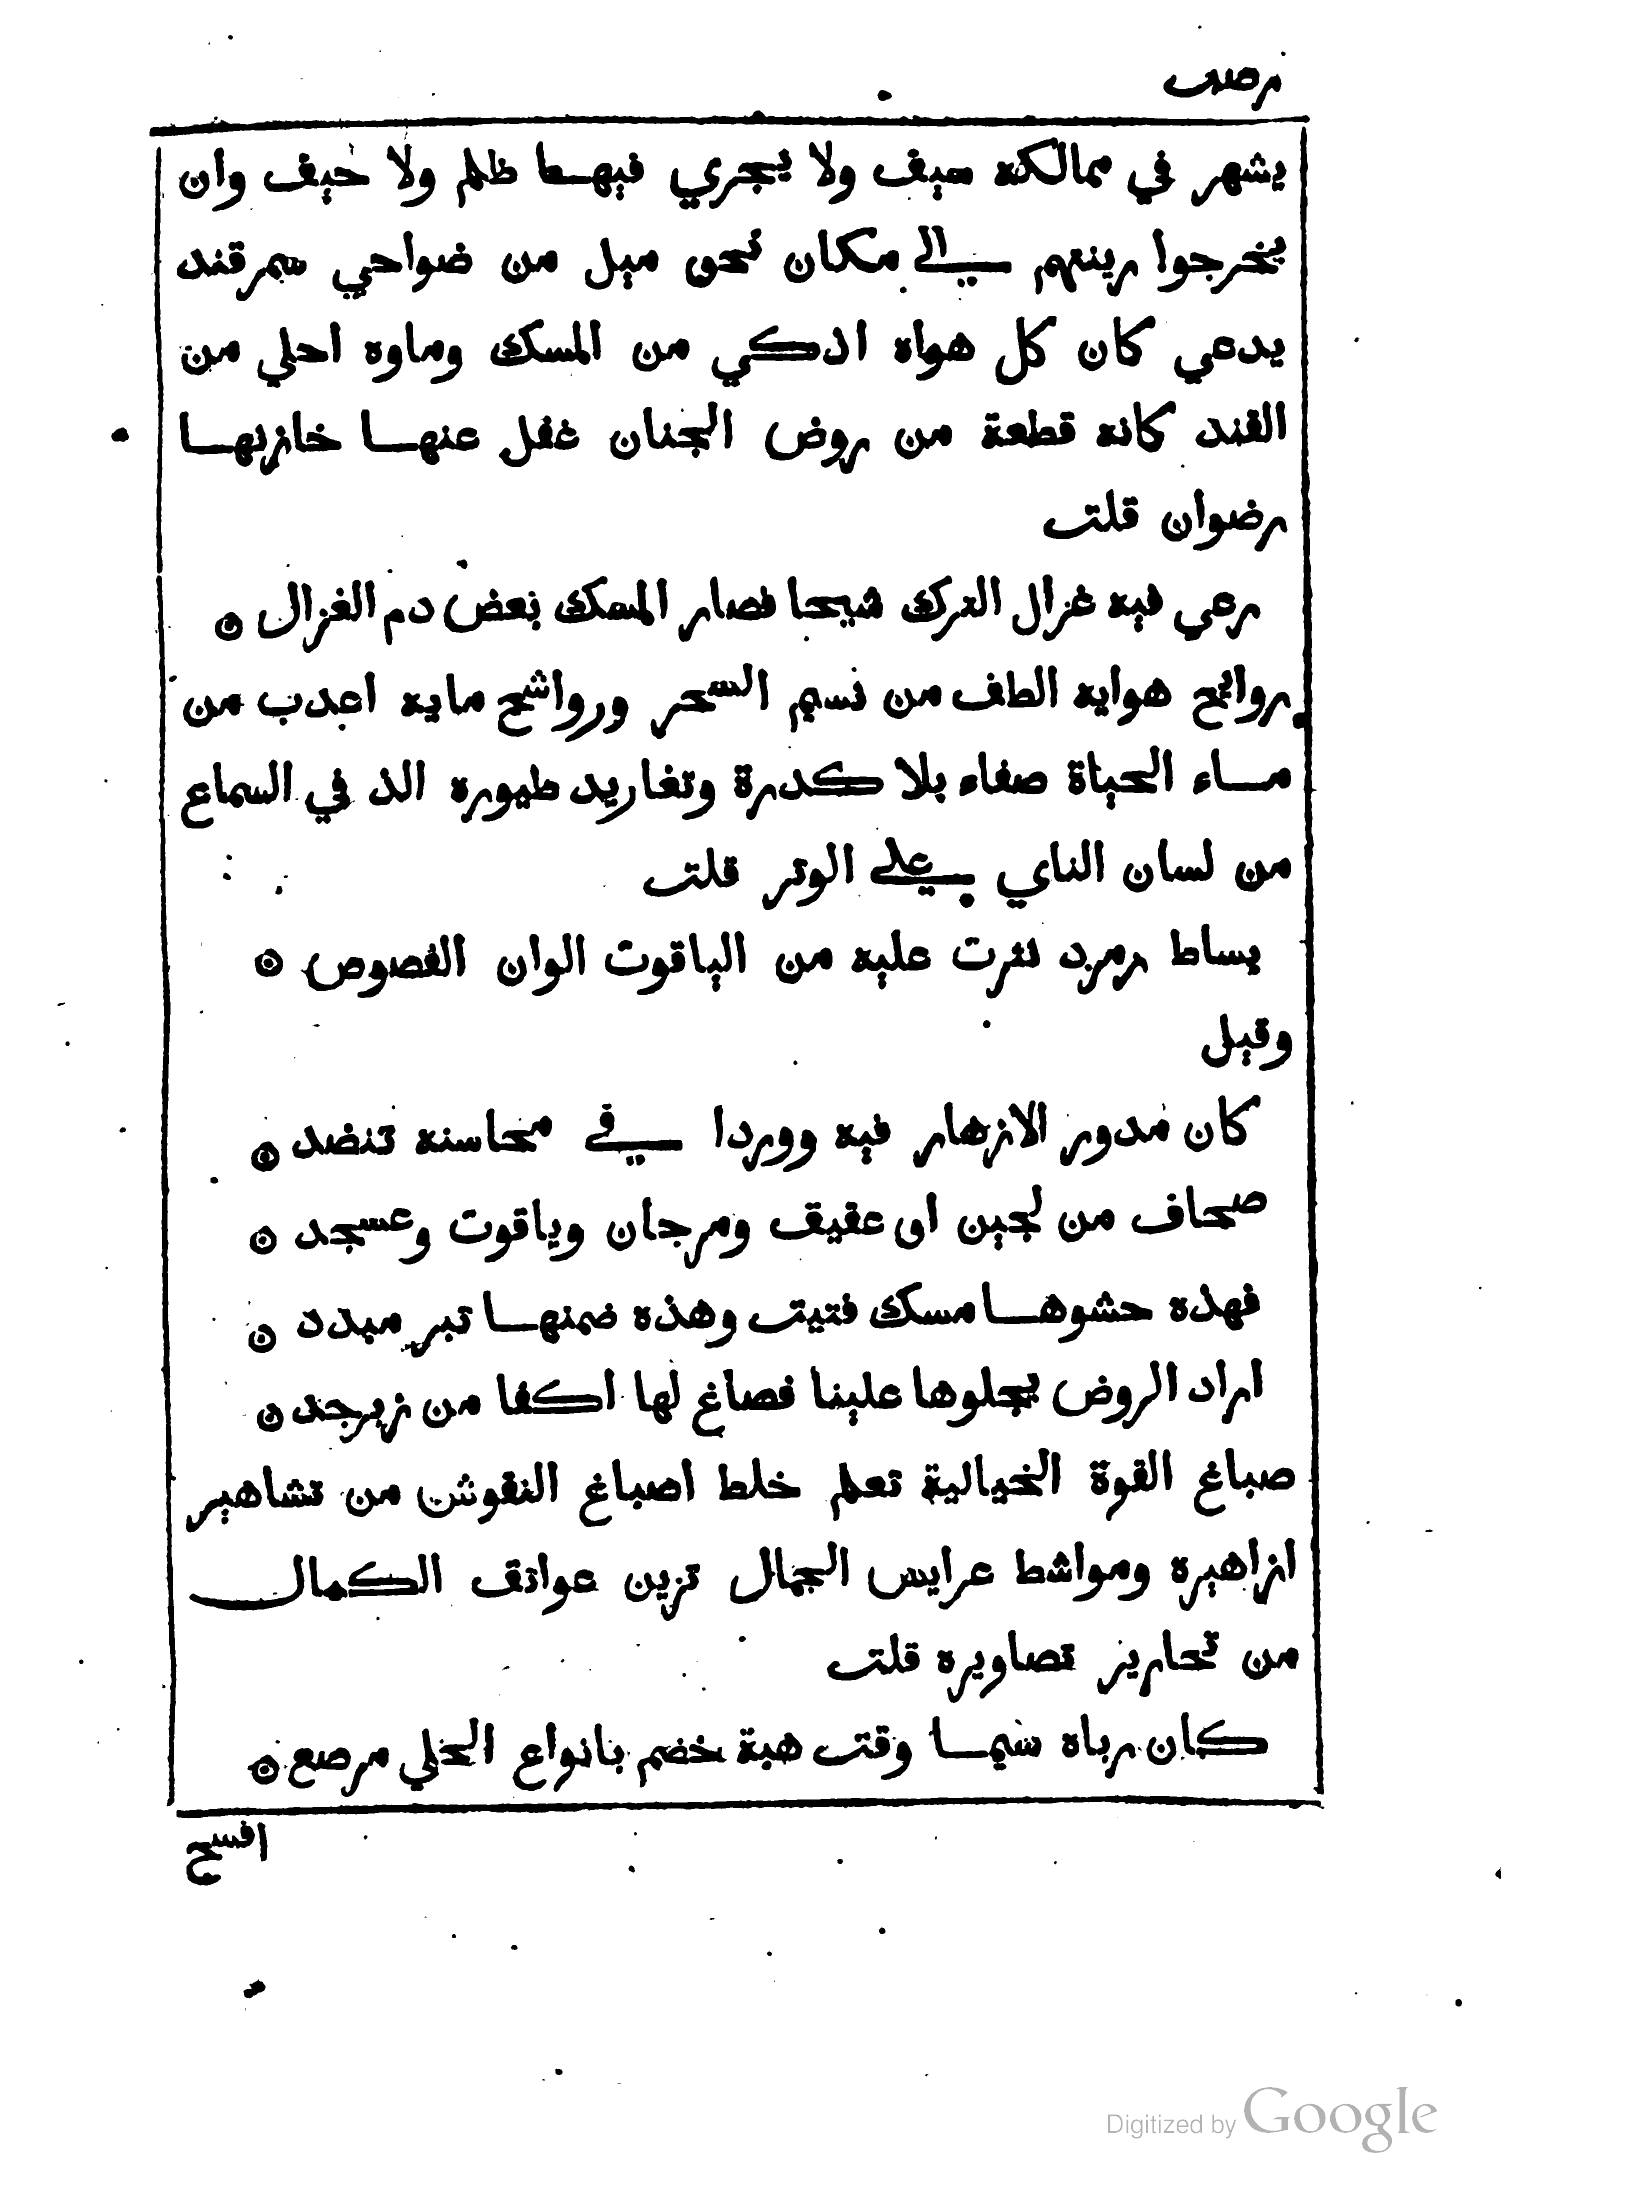 يشهر في ممالكه سيف ولا يجري فيهـا ظلم ولا حيف وان
يخرجوا زينتهم الي مكان نحو ميل من ضواحي سمرقند
يدعي كان كل هواه اذكي من المسك وماوه احلي من
القند كانه قطعة من روض الجنان غفل عنهـا خازنهـا
رضوان قلت
رعي فيه غزال الترك شيحا فصار المسك بعض دم الغزال
روايح هوايه الطف من نسيم السحر ورواشح مايه اعدب من
مـاء الحياة صفاء بلا كدرة وتغاريد طيوره الذ في السماع
من لسان الناي علي الوتر قلت
بساط زمرد نثرت عليه من الياقوت الوان الفصوص
وقيل
كان مدور الازهار فيه ووردا في محاسنه تنضد
صحاف من لجين او عقيق ومرجان وياقوت وعسجد
فهذه حشوهـا مسك فتيت وهذه ضمنهـا تبر مبدد
اراد الروض يجلوها علينا فصاغ لها اكفا من زبرجد
صباغ القوة الخيالية تعلم خلط اصباغ النقوش من تشاهير
ازاهيره ومواشط عرايس الجمال تزين عواتق الكمال
من تحارير تصاويره قلت
كان رباه سيمـا وقت هبة خضم بانواع الحلي مرصع
افسح
Digitized by Google